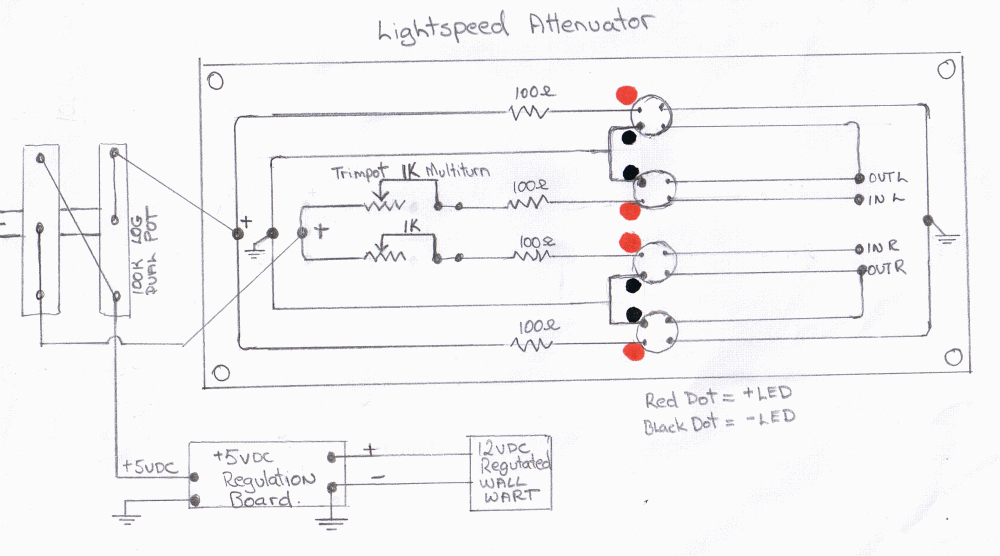 Lightspeed Attenuator
100Ω
Trimpot 1K Multiturn
100Ω
OUT L
IN L
+
+
1K
100Ω
IN R
OUT R
100K LOG
DUAL POT
100Ω
Red Dot = +LED
Black Dot = -LED
+5VDC
+5VDC
Regulation
Board.
+
-
12VDC
Regutated
WALL
WART